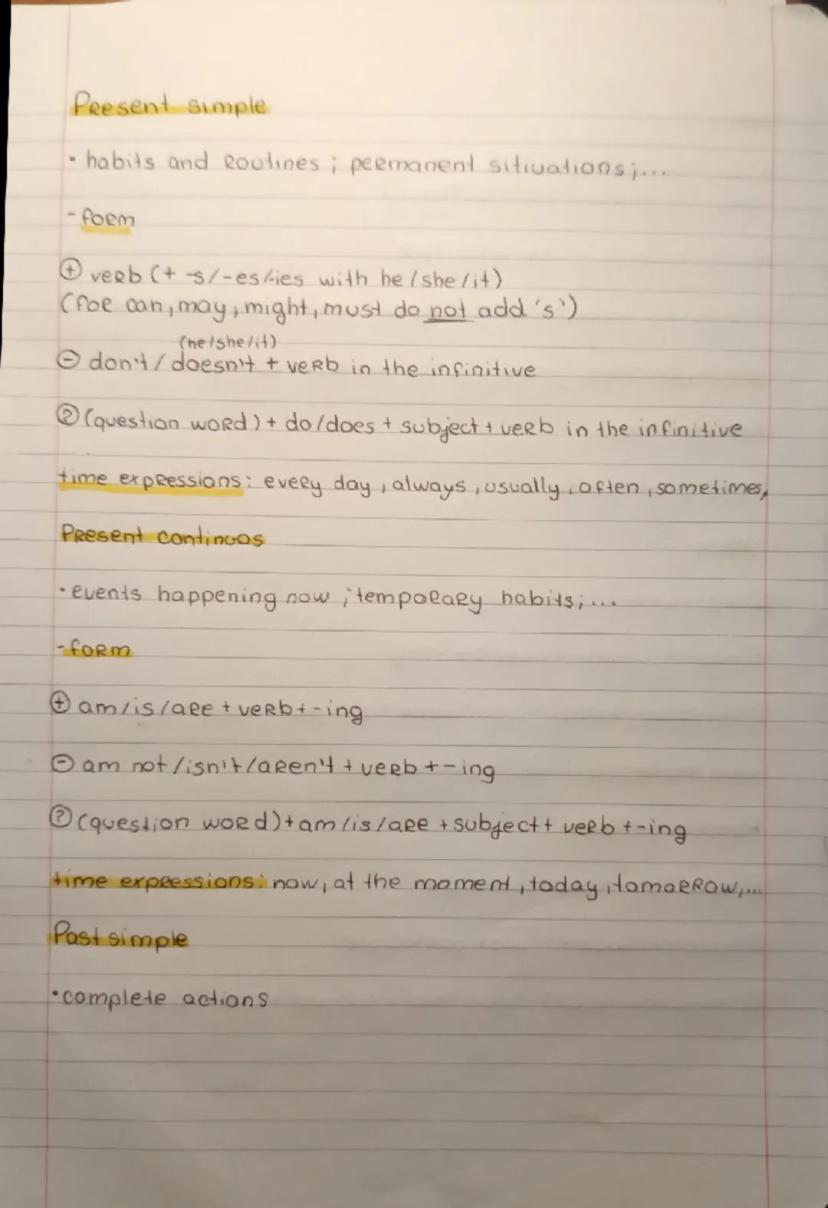 Present simple
• habits and routines ; permanent sitivations ;...
- form
⊕ verb (+ -s/-es/-ies with he/she/it)
(for can, may, might, must do not add 's')
(he/she/it)
⊖ don't / doesn't + verb in the infinitive
? (question word) + do/does + subject + verb in the infinitive
time expressions: every day, always, usually, often, sometimes,
Present continuos
• events happening now ; temporary habits;...
- form
⊕ am/is/are + verb + -ing
⊖ am not/isn't/aren't + verb + -ing
? (question word) + am/is/are + subject + verb + -ing
time expressions: now, at the moment, today, tomorrow,...
Past simple
• complete actions